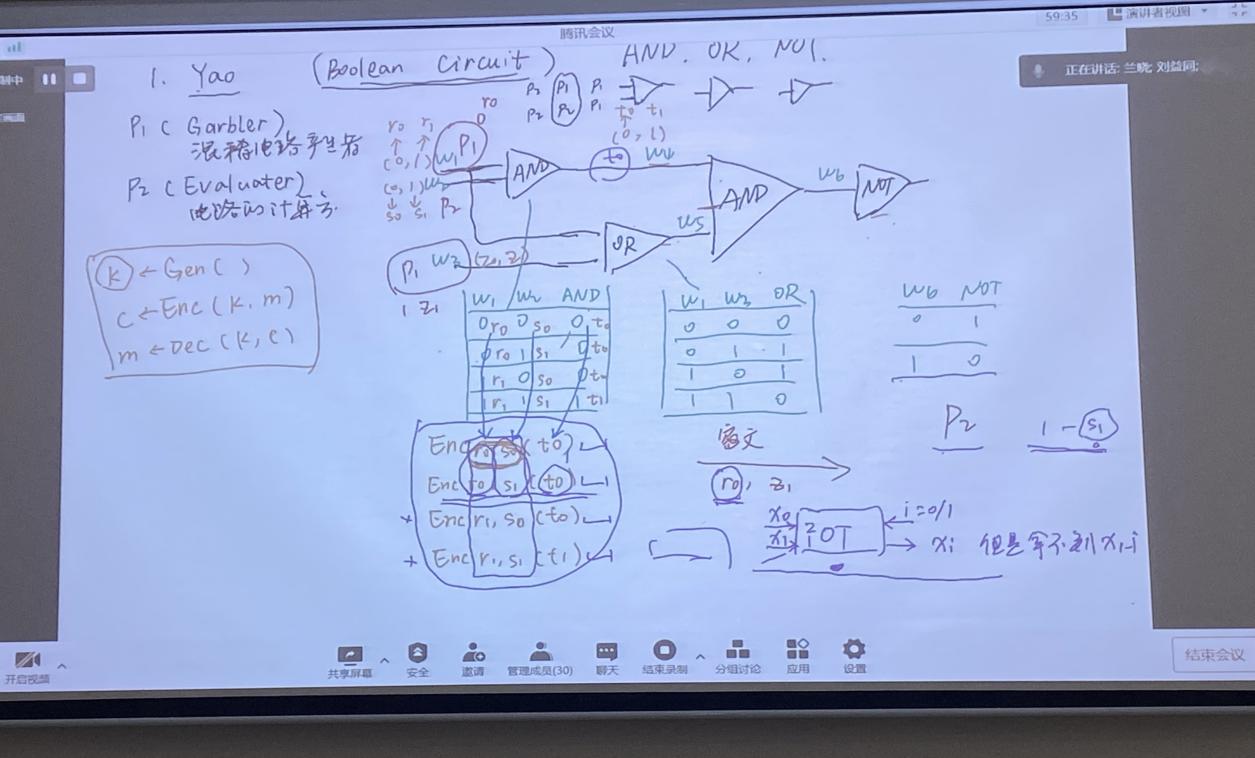 59:35 演讲者视图
腾讯会议
正在讲话: 兰晓; 刘益同;
1. Yao (Boolean Circuit) AND. OR, NOT.
P2 P1 P1
P2 P2 P1
t0 t1
(0, 1)
P1 (Garbler)
混淆电路产生者
P2 (Evaluater)
电路的计算方
r0
0
r0 r1
(0, 1) W1 P1
(0, 1) W2
s0 s1 P2
AND t0 W4
AND W6 NOT
OR W5
P1 W3 (z0, z1)
1 z1
k ← Gen( )
C ← Enc(k, m)
m ← Dec(k, C)
W1 W2 AND
0 r0 0 s0 0 t0
0 r0 1 s1 0 t0
1 r1 0 s0 0 t0
1 r1 1 s1 1 t1
W1 W3 OR
0 0 0
0 1 1
1 0 1
1 1 0
W6 NOT
0 1
1 0
Enc r0 s0 (t0)
Enc r0 s1 (t0)
Enc r1, s0 (t0)
Enc r1, s1 (t1)
密文
r0, z1
P2 1 - s1
x0 i=0/1
x1 2 1 OT → xi 但是拿不到 x1-i
开启视频
共享屏幕
安全
邀请
管理成员(30)
聊天
结束录制
分组讨论
应用
设置
结束会议